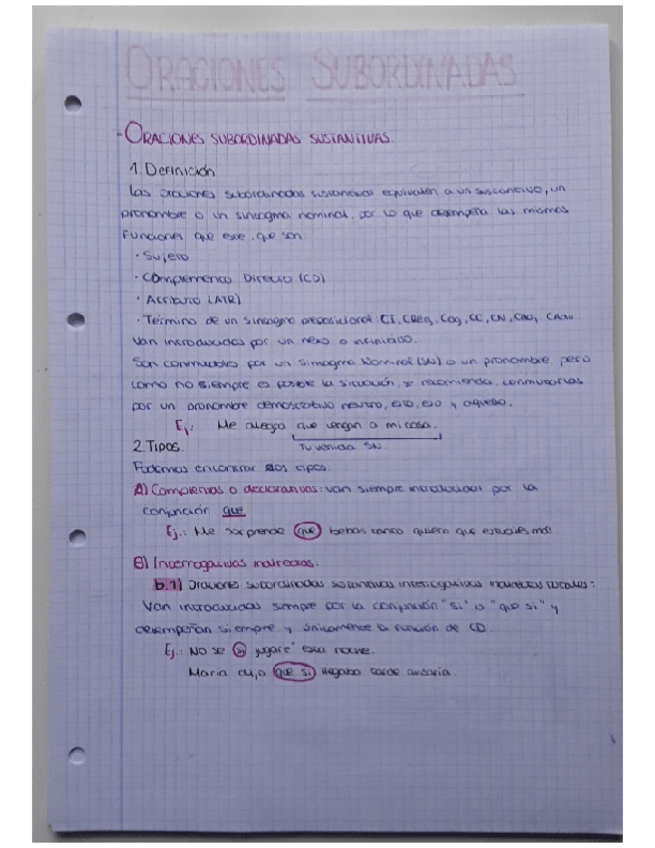 ORACIONES SUBORDINADAS
- ORACIONES SUBORDINADAS SUSTANTIVAS.
1. Definición
Las oraciones subordinadas sustantivas equivalen a un sustantivo, un
pronombre o un sintagma nominal, por lo que desempeña las mismas
funciones que ese, que son:
· Sujeto
· Complemento Directo (CD)
· Atributo (ATR)
· Término de un sintagma preposicional: CI, CReg, Cag, CC, CN, CAdj, CAdv
Van introducidas por un nexo o infinitivo.
Son conmutables por un Sintagma Nominal (SN) o un pronombre, pero
como no siempre es posible la situación, se recomienda, conmutarlas
por un pronombre demostrativo neutro, esto, eso y aquello.
Ej: Me alegra que vengan a mi casa.
Tu venida SN
2. Tipos.
Podemos encontrar dos tipos:
A) Completivas o declarativas: van siempre introducidas por la
conjunción que
Ej.: Me sorprende que bebas tanto quiero que estudies más.
B) Interrogativas indirectas:
b.1) Oraciones subordinadas sustantivas interrogativas indirectas totales:
Van introducidas siempre por la conjunción "si" o "que si" y
desempeñan siempre y únicamente la función de CD.
Ej.: No se si jugaré esta noche.
María dijo que si llegaba tarde avisaría.